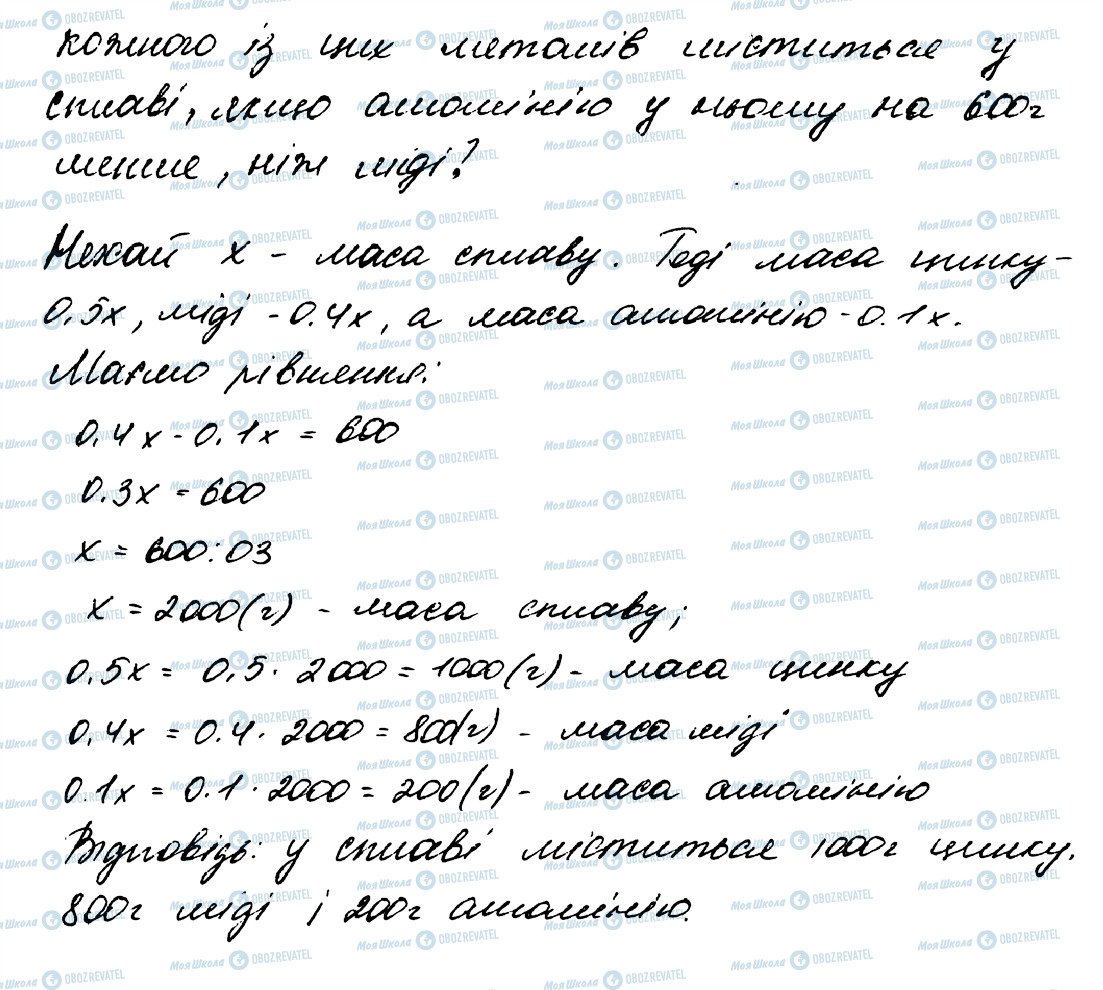 кожного із цих металів міститься у
сплаві, якщо алюмінію у ньому на 600г
менше, ніж міді?
Нехай x - маса сплаву. Тоді маса цинку -
0,5x, міді - 0.4x, а маса алюмінію - 0.1x.
Маємо рівняння:
0,4x - 0.1x = 600
0.3x = 600
x = 600:03
x = 2000(г) - маса сплаву;
0,5x = 0,5 · 2000 = 1000(г) - маса цинку
0,4x = 0.4 · 2000 = 800(г) - маса міді
0.1x = 0.1 · 2000 = 200(г) - маса алюмінію
Відповідь: у сплаві міститься 1000г цинку,
800г міді і 200г алюмінію.